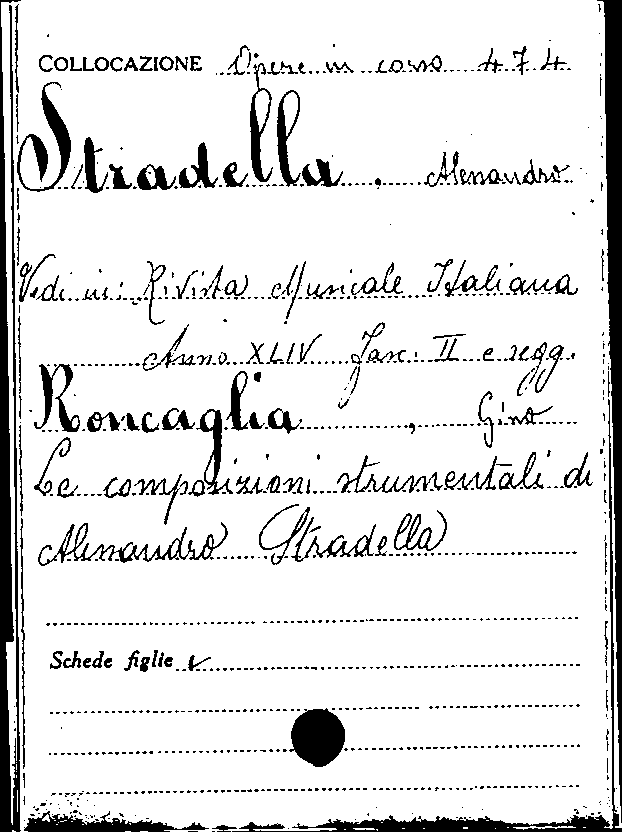 COLLOCAZIONE Opere in corso 474
Stradella, Alessandro
Vedi in: Rivista Musicale Italiana
Anno XLIV Fasc. II e segg.
Roncaglia, Gino
Le composizioni strumentali di
Alessandro Stradella
Schede figlie